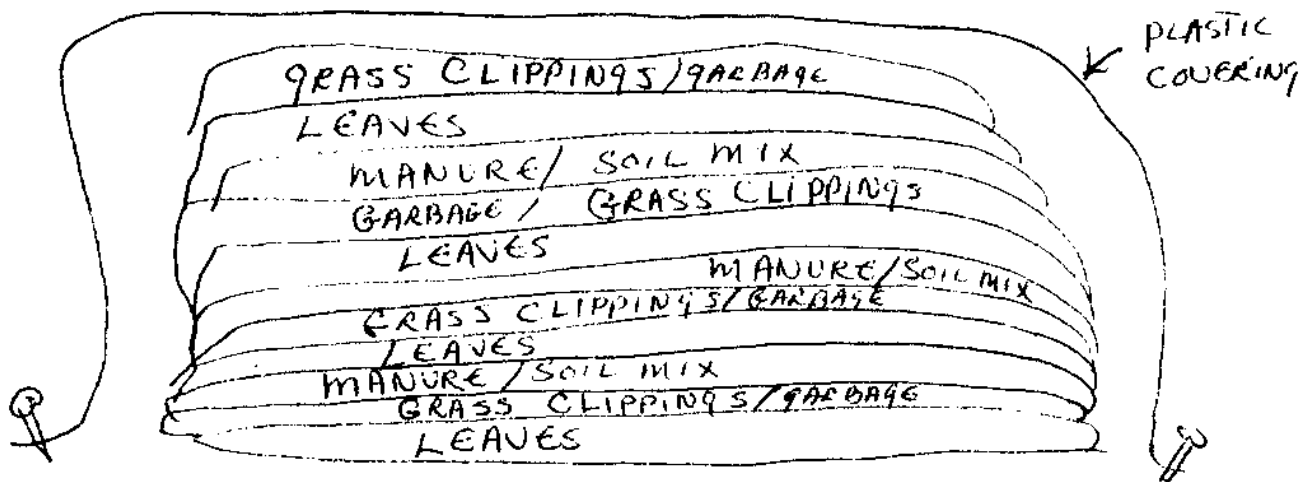 PLASTIC
COVERING
GRASS CLIPPINGS/GARBAGE
LEAVES
MANURE/ SOIL MIX
GARBAGE/ GRASS CLIPPINGS
LEAVES
MANURE/SOIL MIX
GRASS CLIPPINGS/GARBAGE
LEAVES
MANURE/SOIL MIX
GRASS CLIPPINGS/GARBAGE
LEAVES